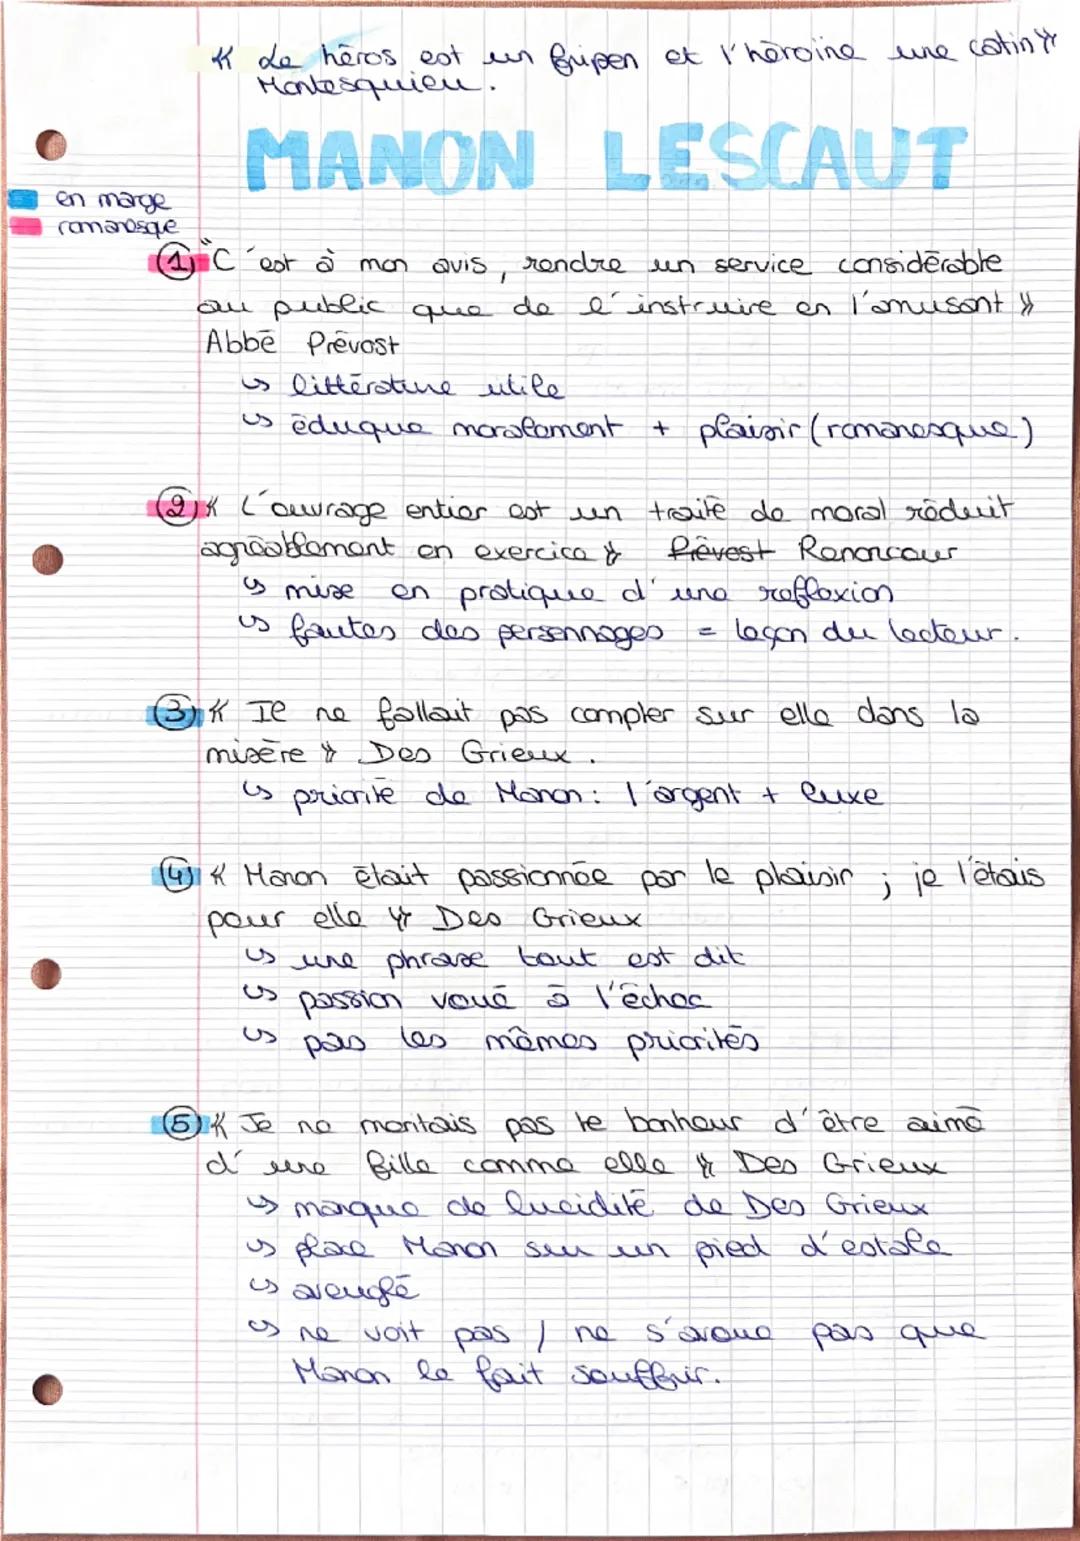 « Le héros est un fripon et l'héroïne une catin »
Montesquieu.
MANON LESCAUT
en marge
romanesque
① "C'est à mon avis, rendre un service considérable
au public que de l'instruire en l'amusant »
Abbé Prévost
↳ littérature utile
↳ éduque moralement + plaisir (romanesque)
② « L'ouvrage entier est un traité de moral réduit
agréablement en exercice » Prévost Renoncour
↳ mise en pratique d'une reflexion
↳ fautes des personnages = leçon du lecteur.
③ « Il ne fallait pas compter sur elle dans la
misère » Des Grieux.
↳ priorité de Manon: l'argent + luxe
④ « Manon était passionnée par le plaisir ; je l'étais
pour elle » Des Grieux
↳ une phrase tout est dit
↳ passion voué à l'échec
↳ pas les mêmes priorités
⑤ « Je ne méritais pas le bonheur d'être aimé
d'une fille comme elle » Des Grieux
↳ manque de lucidité de Des Grieux
↳ place Manon sur un pied d'estale
↳ aveuglé
↳ ne voit pas / ne s'avoue pas que
Manon le fait souffrir.